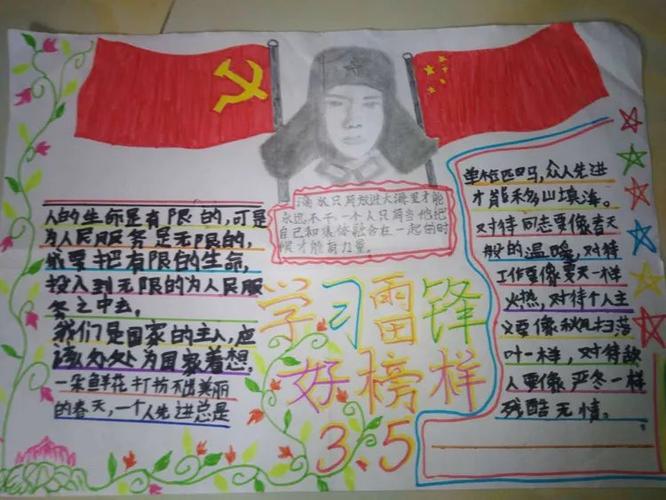 人的生命是有限的,可是
为人民服务是无限的,
我要把有限的生命,
投入到无限的为人民服
务之中去。
我们是国家的主人,应
该处处为国家着想。
一朵鲜花打扮不出美丽
的春天,一个人先进总是
滴水只有放进大海里才能
永远不干一个人只有当他把
自己和集体融合在一起的时
候才能有力量。
学习雷锋
好榜样
3.5
单枪匹马,众人先进
才能移山填海。
对待同志要像春天
般的温暖,对待
工作要像夏天一样
火热,对待个人主
义要像秋风扫落
叶一样,对待敌
人要像严冬一样
残酷无情。